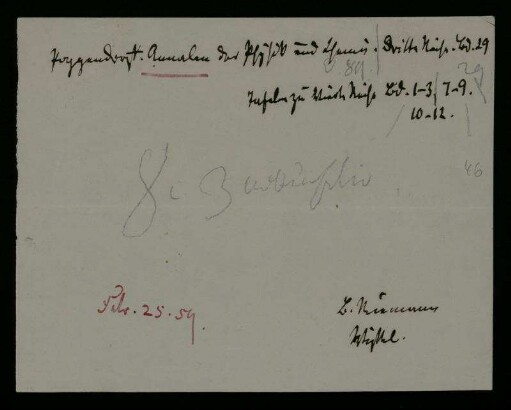 Poggendorf. Annalen der Physik und Chemie. Dritte Reihe. Bd. 29
89 29
Tafeln zu Reihe Bd. 1-3, 7-9.
10-12.
46
Febr. 25. 59.
B. Riemann